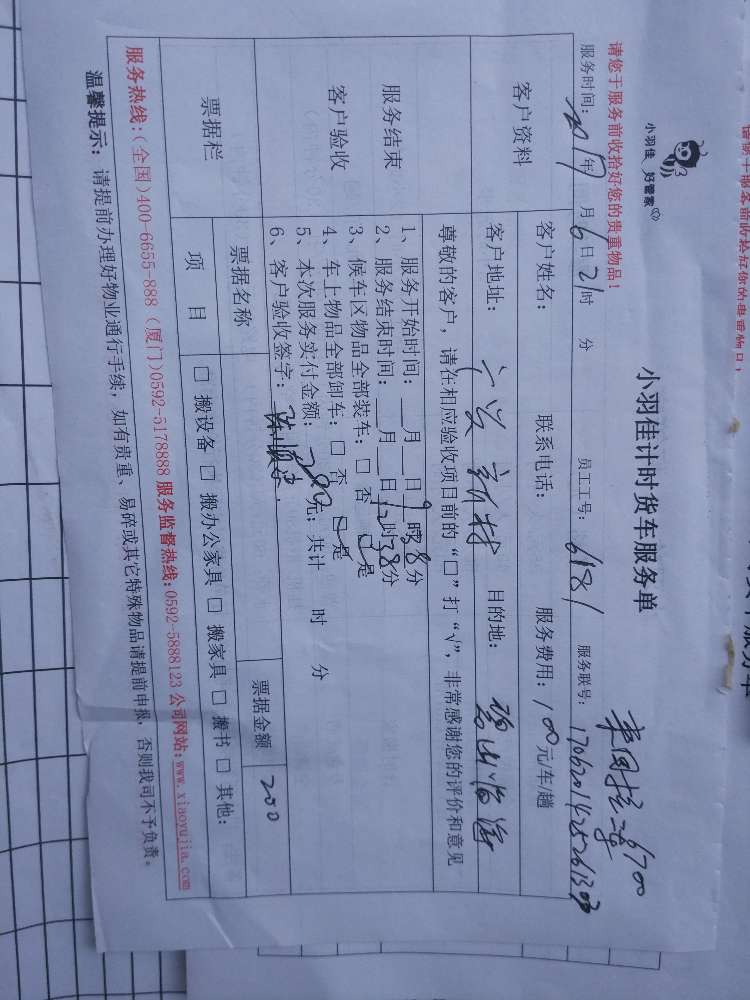 小羽佳 好管家
小羽佳计时货车服务单
请您于服务前收拾好您的贵重物品!
服务时间: 2017年 6月 21日 时 分 员工工号: 6181 服务联号:
客户资料
客户姓名: 联系电话: 服务费用: 100元/车/趟
客户地址: 目的地:
服务结束
客户验收
尊敬的客户, 请在相应验收项目前的“□”打“√”, 非常感谢您的评价和意见
1、服务开始时间: __月__日9时38分
2、服务结束时间: __月__日12时38分
3、候车区物品全部装车: □ 否 □是
4、车上物品全部卸车: □ 否 □是
5、本次服务实付金额: 200元; 共计 时 分
6、客户验收签字:
票据栏
票据名称 票据金额 200
项 目 □ 搬设备 □ 搬办公家具 □ 搬家具 □ 搬书 □ 其他:
服务热线:(全国)400-6655-888 (厦门)0592-5178888 服务监督热线:0592-5888123 公司网站:www.xiaoyujia.com
温馨提示: 请提前办理好物业通行手续, 如有贵重、易碎或其它特殊物品请提前申报, 否则我司不予负责。